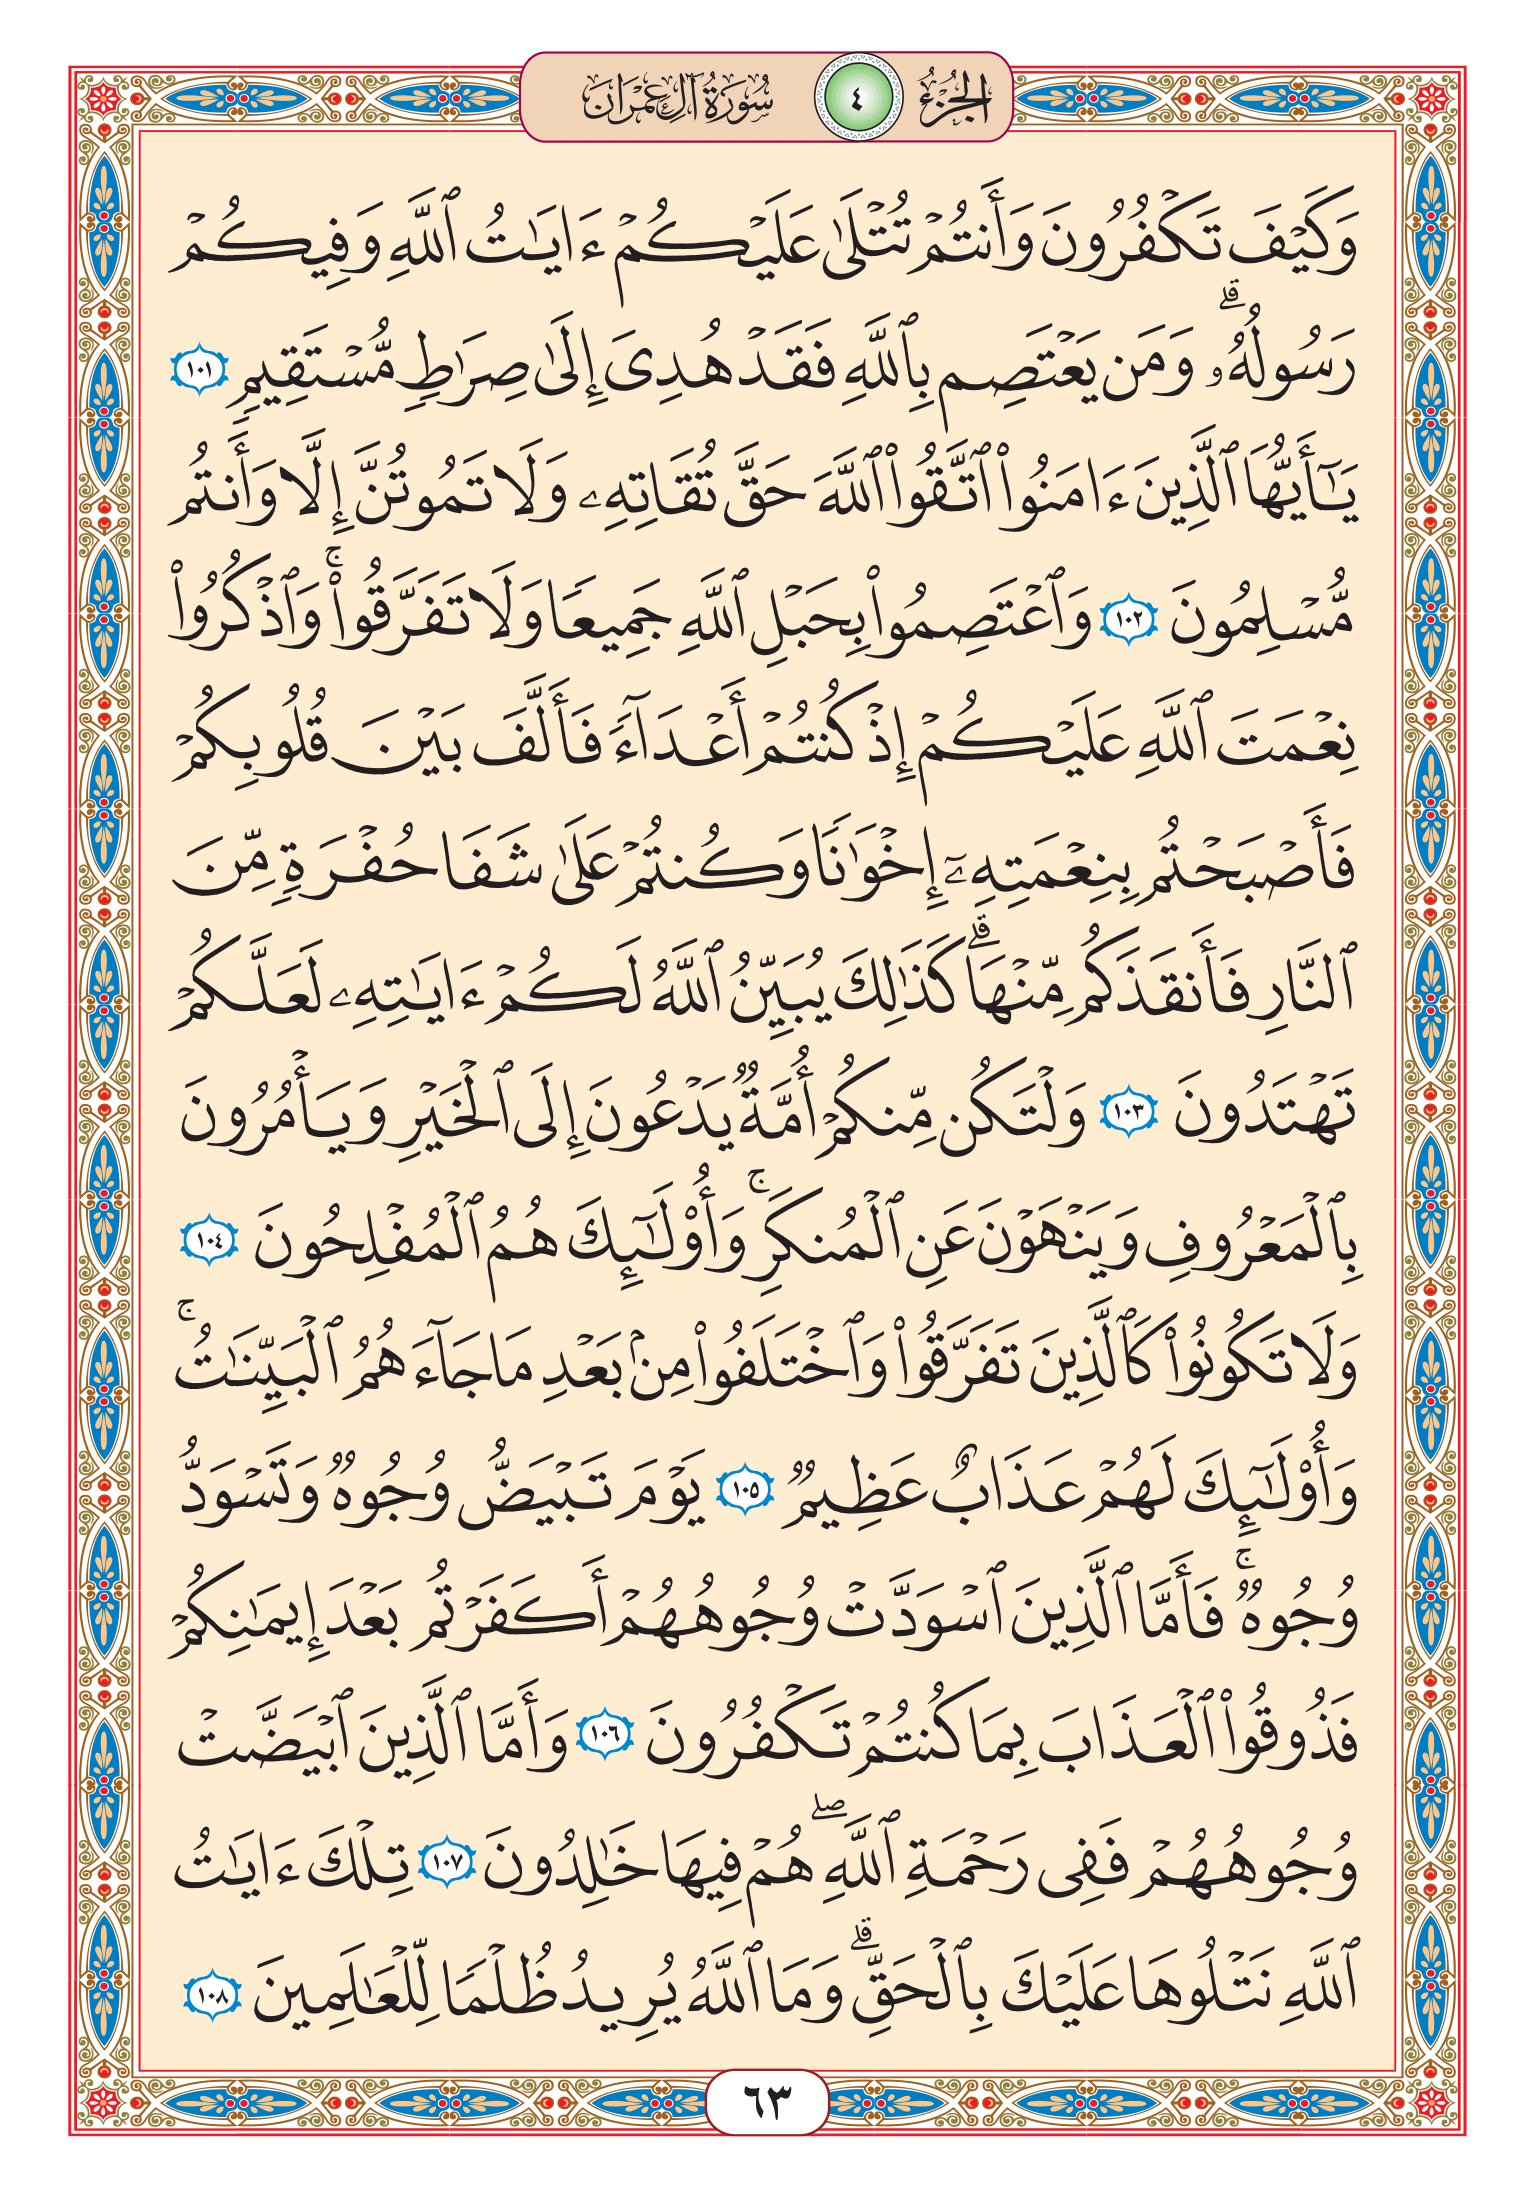 الجزء ٤ سورة آل عمران
وَكَيۡفَ تَكۡفُرُونَ وَأَنتُمۡ تُتۡلَىٰ عَلَيۡكُمۡ ءَايَٰتُ ٱللَّهِ وَفِيكُمۡ
رَسُولُهُۥۗ وَمَن يَعۡتَصِم بِٱللَّهِ فَقَدۡ هُدِيَ إِلَىٰ صِرَٰطٖ مُّسۡتَقِيمٖ ١٠١
يَٰٓأَيُّهَا ٱلَّذِينَ ءَامَنُواْ ٱتَّقُواْ ٱللَّهَ حَقَّ تُقَاتِهِۦ وَلَا تَمُوتُنَّ إِلَّا وَأَنتُم
مُّسۡلِمُونَ ١٠٢ وَٱعۡتَصِمُواْ بِحَبۡلِ ٱللَّهِ جَمِيعٗا وَلَا تَفَرَّقُواْۚ وَٱذۡكُرُواْ
نِعۡمَتَ ٱللَّهِ عَلَيۡكُمۡ إِذۡ كُنتُمۡ أَعۡدَآءٗ فَأَلَّفَ بَيۡنَ قُلُوبِكُمۡ
فَأَصۡبَحۡتُم بِنِعۡمَتِهِۦٓ إِخۡوَٰنٗا وَكُنتُمۡ عَلَىٰ شَفَا حُفۡرَةٖ مِّنَ
ٱلنَّارِ فَأَنقَذَكُم مِّنۡهَاۗ كَذَٰلِكَ يُبَيِّنُ ٱللَّهُ لَكُمۡ ءَايَٰتِهِۦ لَعَلَّكُمۡ
تَهۡتَدُونَ ١٠٣ وَلۡتَكُن مِّنكُمۡ أُمَّةٞ يَدۡعُونَ إِلَى ٱلۡخَيۡرِ وَيَأۡمُرُونَ
بِٱلۡمَعۡرُوفِ وَيَنۡهَوۡنَ عَنِ ٱلۡمُنكَرِۚ وَأُوْلَٰٓئِكَ هُمُ ٱلۡمُفۡلِحُونَ ١٠٤
وَلَا تَكُونُواْ كَٱلَّذِينَ تَفَرَّقُواْ وَٱخۡتَلَفُواْ مِنۢ بَعۡدِ مَا جَآءَهُمُ ٱلۡبَيِّنَٰتُۚ
وَأُوْلَٰٓئِكَ لَهُمۡ عَذَابٌ عَظِيمٞ ١٠٥ يَوۡمَ تَبۡيَضُّ وُجُوهٞ وَتَسۡوَدُّ
وُجُوهٞۚ فَأَمَّا ٱلَّذِينَ ٱسۡوَدَّتۡ وُجُوهُهُمۡ أَكَفَرۡتُم بَعۡدَ إِيمَٰنِكُمۡ
فَذُوقُواْ ٱلۡعَذَابَ بِمَا كُنتُمۡ تَكۡفُرُونَ ١٠٦ وَأَمَّا ٱلَّذِينَ ٱبۡيَضَّتۡ
وُجُوهُهُمۡ فَفِي رَحۡمَةِ ٱللَّهِۖ هُمۡ فِيهَا خَٰلِدُونَ ١٠٧ تِلۡكَ ءَايَٰتُ
ٱللَّهِ نَتۡلُوهَا عَلَيۡكَ بِٱلۡحَقِّۗ وَمَا ٱللَّهُ يُرِيدُ ظُلۡمٗا لِّلۡعَٰلَمِينَ ١٠٨
٦٣